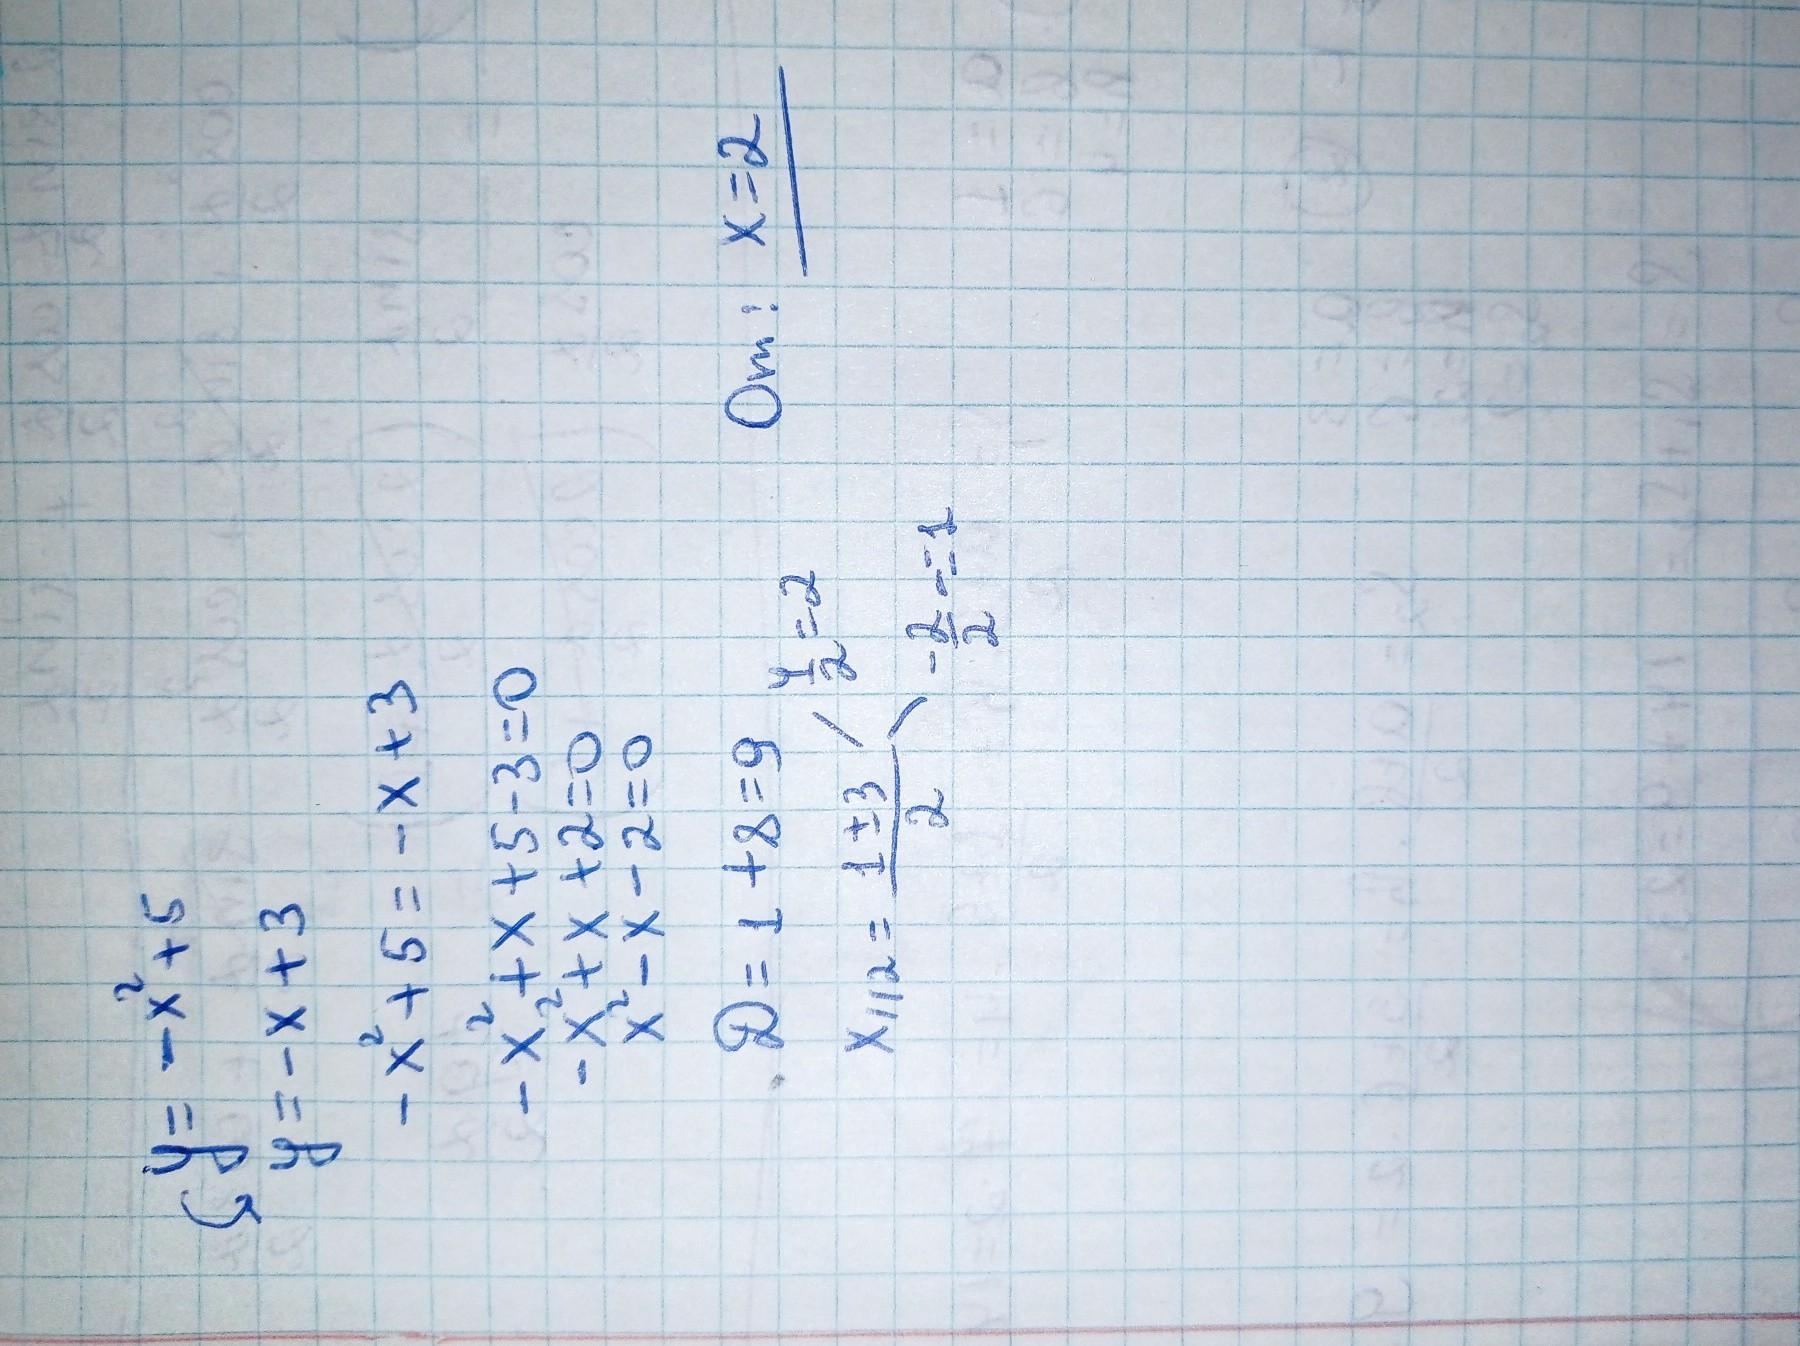 y = -x² + 5
y = -x + 3
-x² + 5 = -x + 3
-x² + x + 5 - 3 = 0
-x² + x + 2 = 0
x² - x - 2 = 0
D = 1 + 8 = 9
x₁,₂ = (1 ± 3)/2
4/2 = 2
-2/2 = -1
От: x = 2